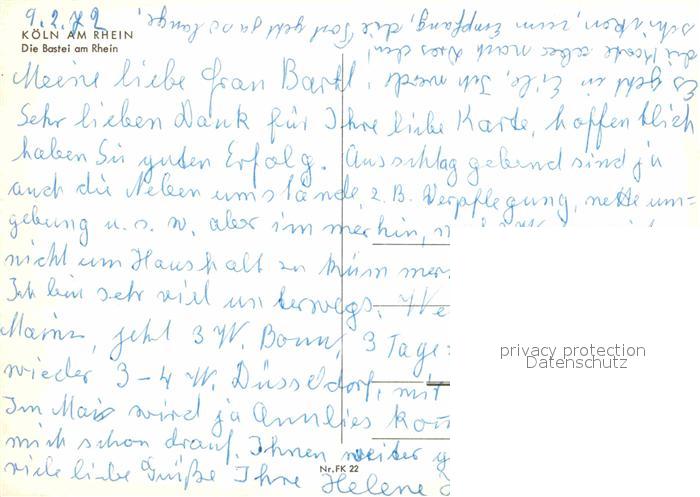 9.2.72
KÖLN AM RHEIN
Die Bastei am Rhein
Meine liebe Frau Bartl,
Sehr lieben Dank für Ihre liebe Karte, hoffentlich
haben Sie guten Erfolg. Ausschlag gebend sind ja
auch die Neben umstände, z.B. Verpflegung, nette um=
gebung u.s.w, aber im merhin,
nicht um Haushalt zu küm mer
Ich bin sehr viel un terwegs. We
Mainz, jetzt 3 W. Bonn, 3 Tage
wieder 3-4 W. Düsseldorf, mit
Im Mai wird ja Annlies
mich schon drauf. Ihnen weiter
viele liebe Grüße Ihre Helene
Es geht in Eile, Ich werde
die Karte aber nach Dresden
schicken, zum Empfang, die Post geht ja so lange,
Nr. FK 22
privacy protection
Datenschutz